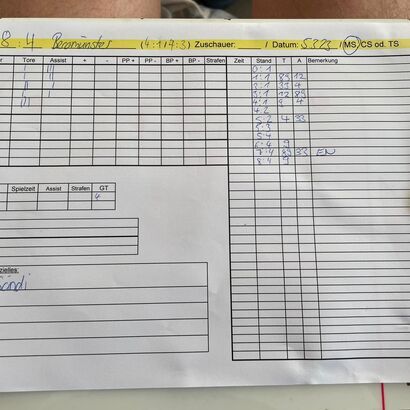 8 : 4 Beromünster (4:1/4:3) Zuschauer: / Datum: 5.3.23 / MS/CS od. TS
Tore Assist + - PP + PP - BP + BP - Strafen Zeit Stand T A Bemerkung
0:1
1:1 89 12
2:1 33 4
3:1 12 89
4:1 9 4
4:2
5:2 4 33
5:3
5:4
6:4 9
7:4 89 33 EN
8:4 9
Spielzeit Assist Strafen GT
4